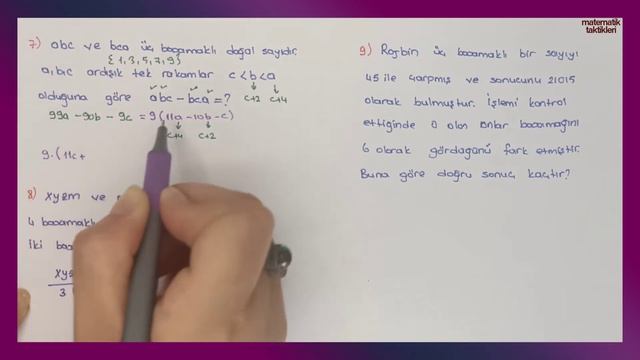 matematik
taktikleri
7) abc ve bca üç basamaklı doğal sayıdır.
{1,3,5,7,9}
a,b,c ardışık tek rakamlar c<b<a
c+2 c+4
olduğuna göre abc - bca = ?
99a - 90b - 9c = 9(11a - 10b - c)
c+4 c+2
9.(11c +
8) xyzm ve
4 basamaklı
İki
xy
3
9) Rojbin üç basamaklı bir sayıyı
45 ile çarpmış ve sonucunu 21015
olarak bulmuştur. İşlemi kontrol
ettiğinde 0 olan onlar basamağını
6 olarak gördüğünü fark etmiştir.
Buna göre doğru sonuç kaçtır?